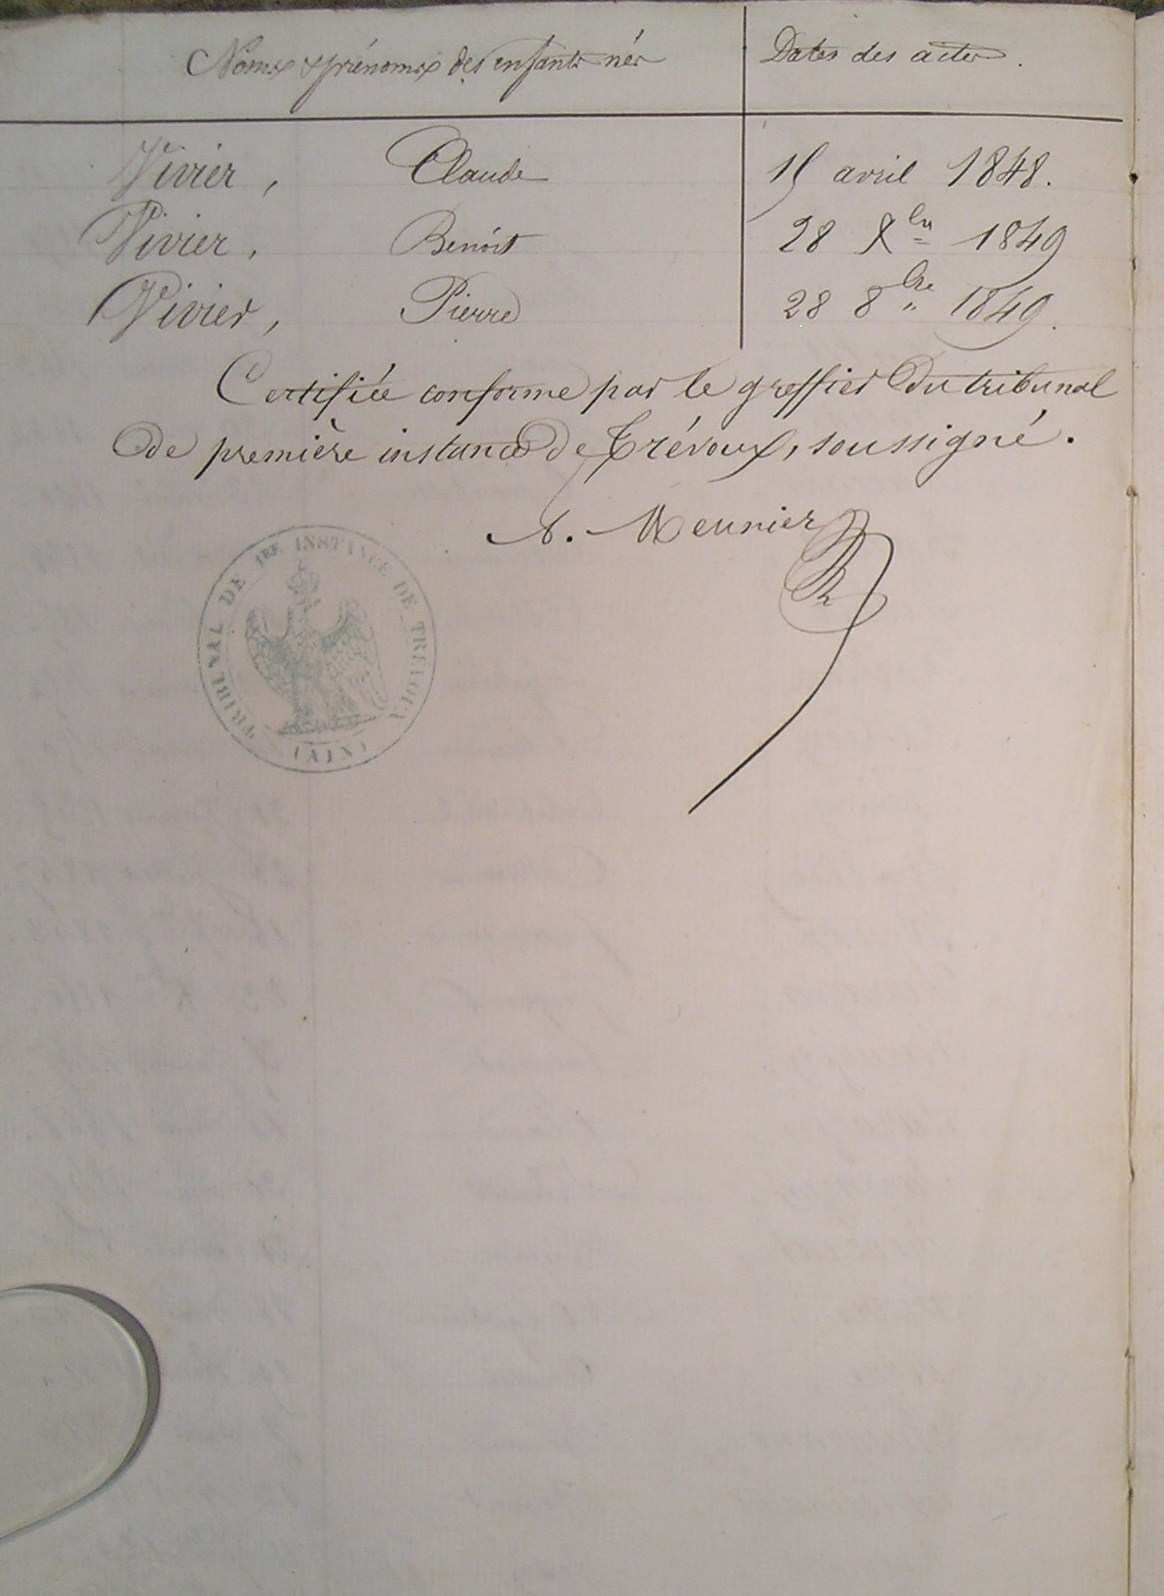 Noms & prénoms des enfants nés Dates des actes.
Vivier, Claude 15 avril 1848.
Vivier, Benoit 28 Xbre 1849
Vivier, Pierre 28 8bre 1849.
Certifiée conforme par le greffier du tribunal
de première instance de Trévoux, soussigné.
A. Meunier
TRIBUNAL DE 1ERE INSTANCE DE TREVOUX
(AIN)